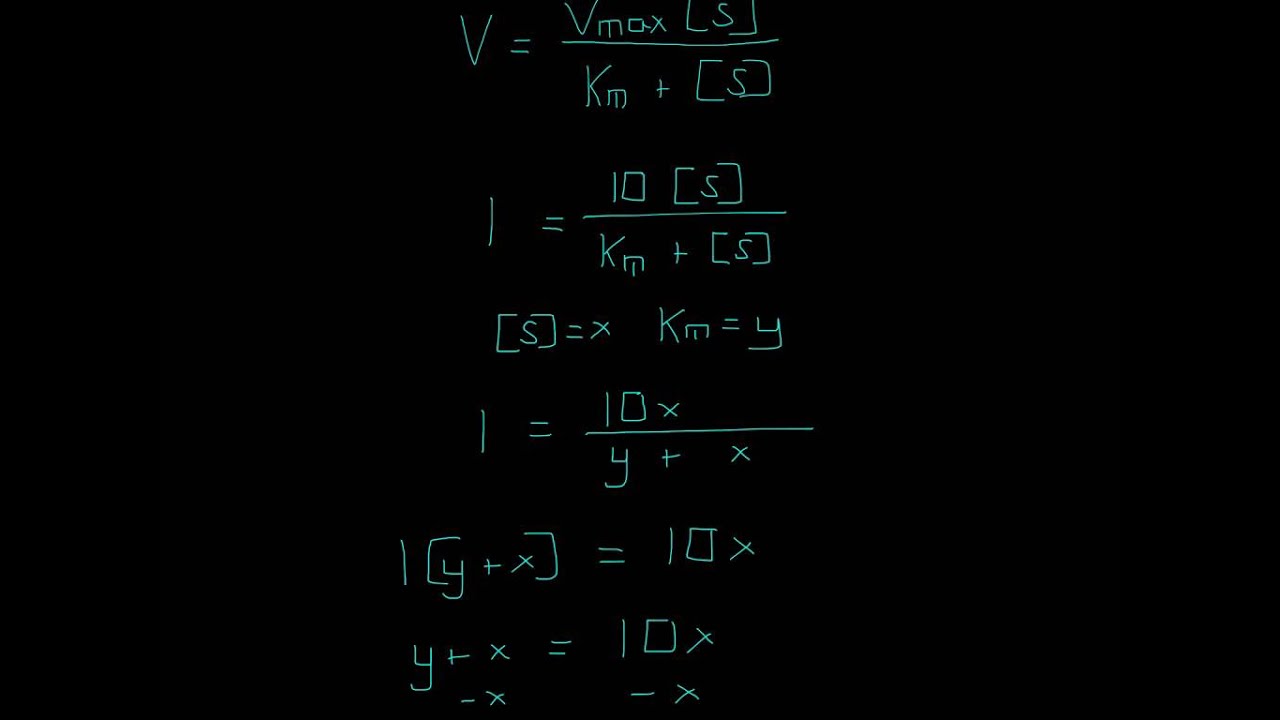 V = Vmax [S] / Km + [S]
1 = 10 [S] / Km + [S]
[S] = x Km = y
1 = 10x / y + x
1[y + x] = 10x
y + x = 10x
- x - x